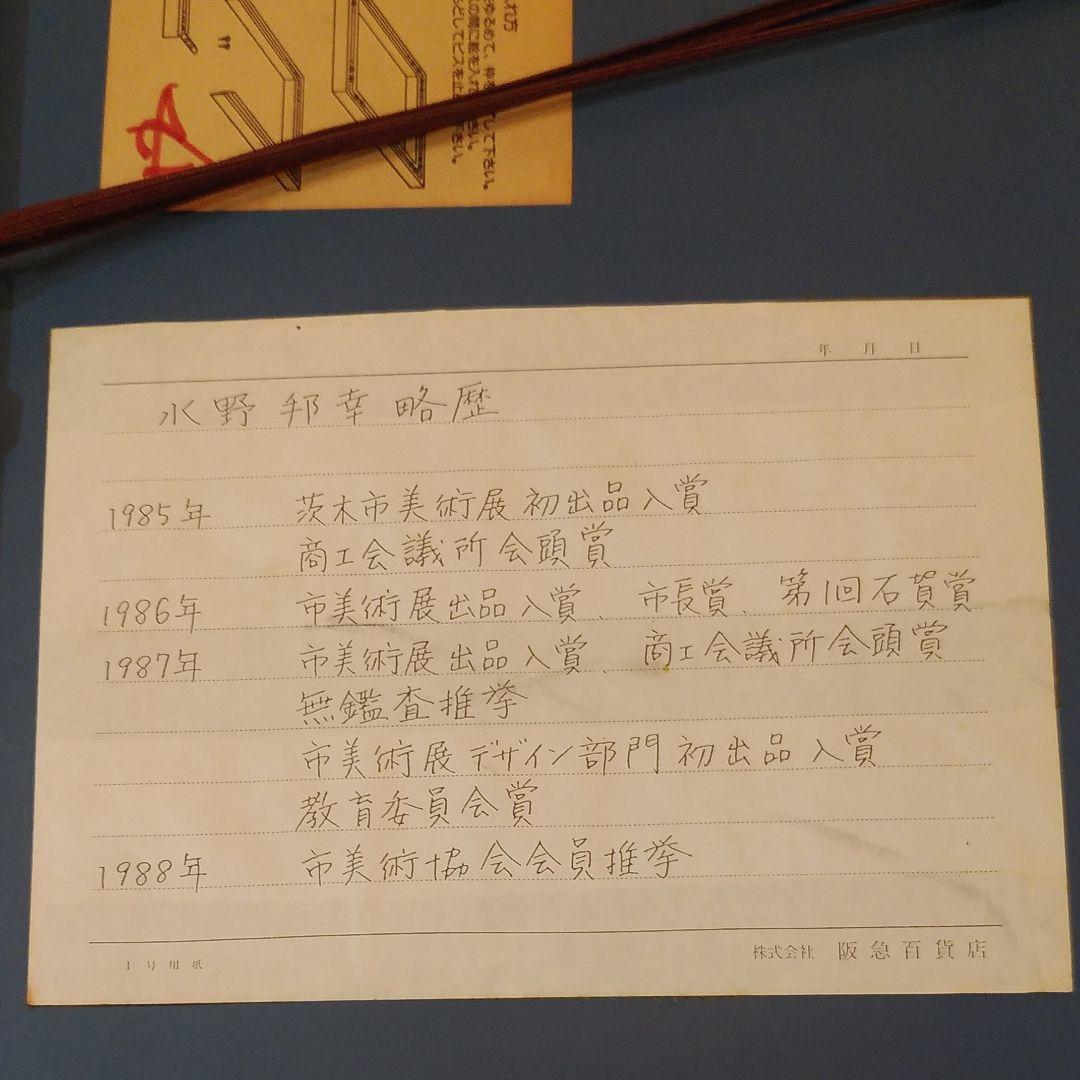 年 月 日
水野邦幸略歴
1985年 茨木市美術展初出品入賞
商工会議所会頭賞
1986年 市美術展出品入賞、市長賞、第1回石賀賞
1987年 市美術展出品入賞、商工会議所会頭賞
無鑑査推挙
市美術展デザイン部門初出品入賞
教育委員会賞
1988年 市美術協会会員推挙
1号用紙 株式会社 阪急百貨店